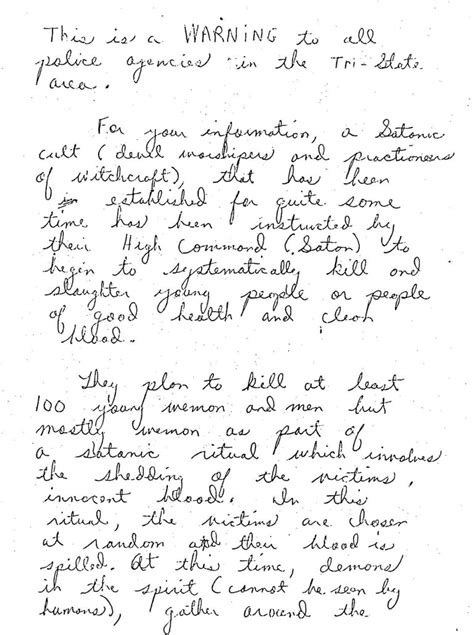 This is a WARNING to all
police agencies in the Tri-State
area.
For your information, a Satanic
cult (devil worshipers and practioners
of witchcraft), that has been
established for quite some
time has been instructed by
their High Command (Satan) to
begin to systematically kill and
slaughter young people or people
of good health and clean
blood.
They plan to kill at least
100 young wemon and men but
mostly wemon as part of
a satanic ritual which involves
the shedding of the victims,
innocent blood. In this
ritual, the victims are chosen
at random and their blood is
spilled. At this time, demons
in the spirit (cannot be seen by
humans), gather around the